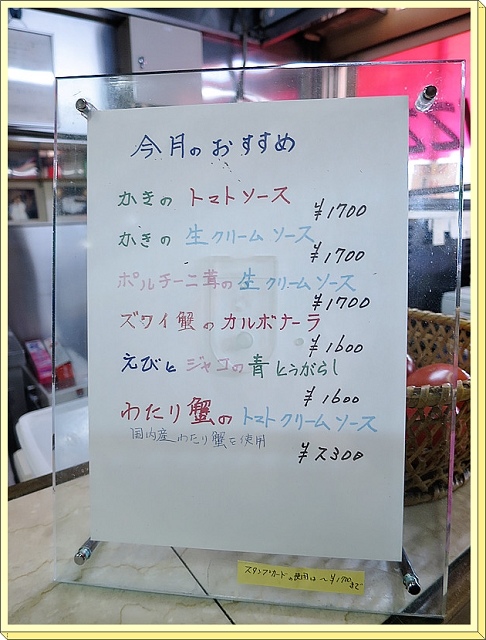 今月のおすすめ
かきの トマトソース
¥1700
かきの 生クリームソース
¥1700
ポルチーニ茸の生クリームソース
¥1700
ズワイ蟹のカルボナーラ
¥1600
えびとジャコの青とうがらし
¥1600
わたり蟹のトマトクリームソース
国内産わたり蟹を使用
¥2300
スタンプカードの使用は〜¥1700まで